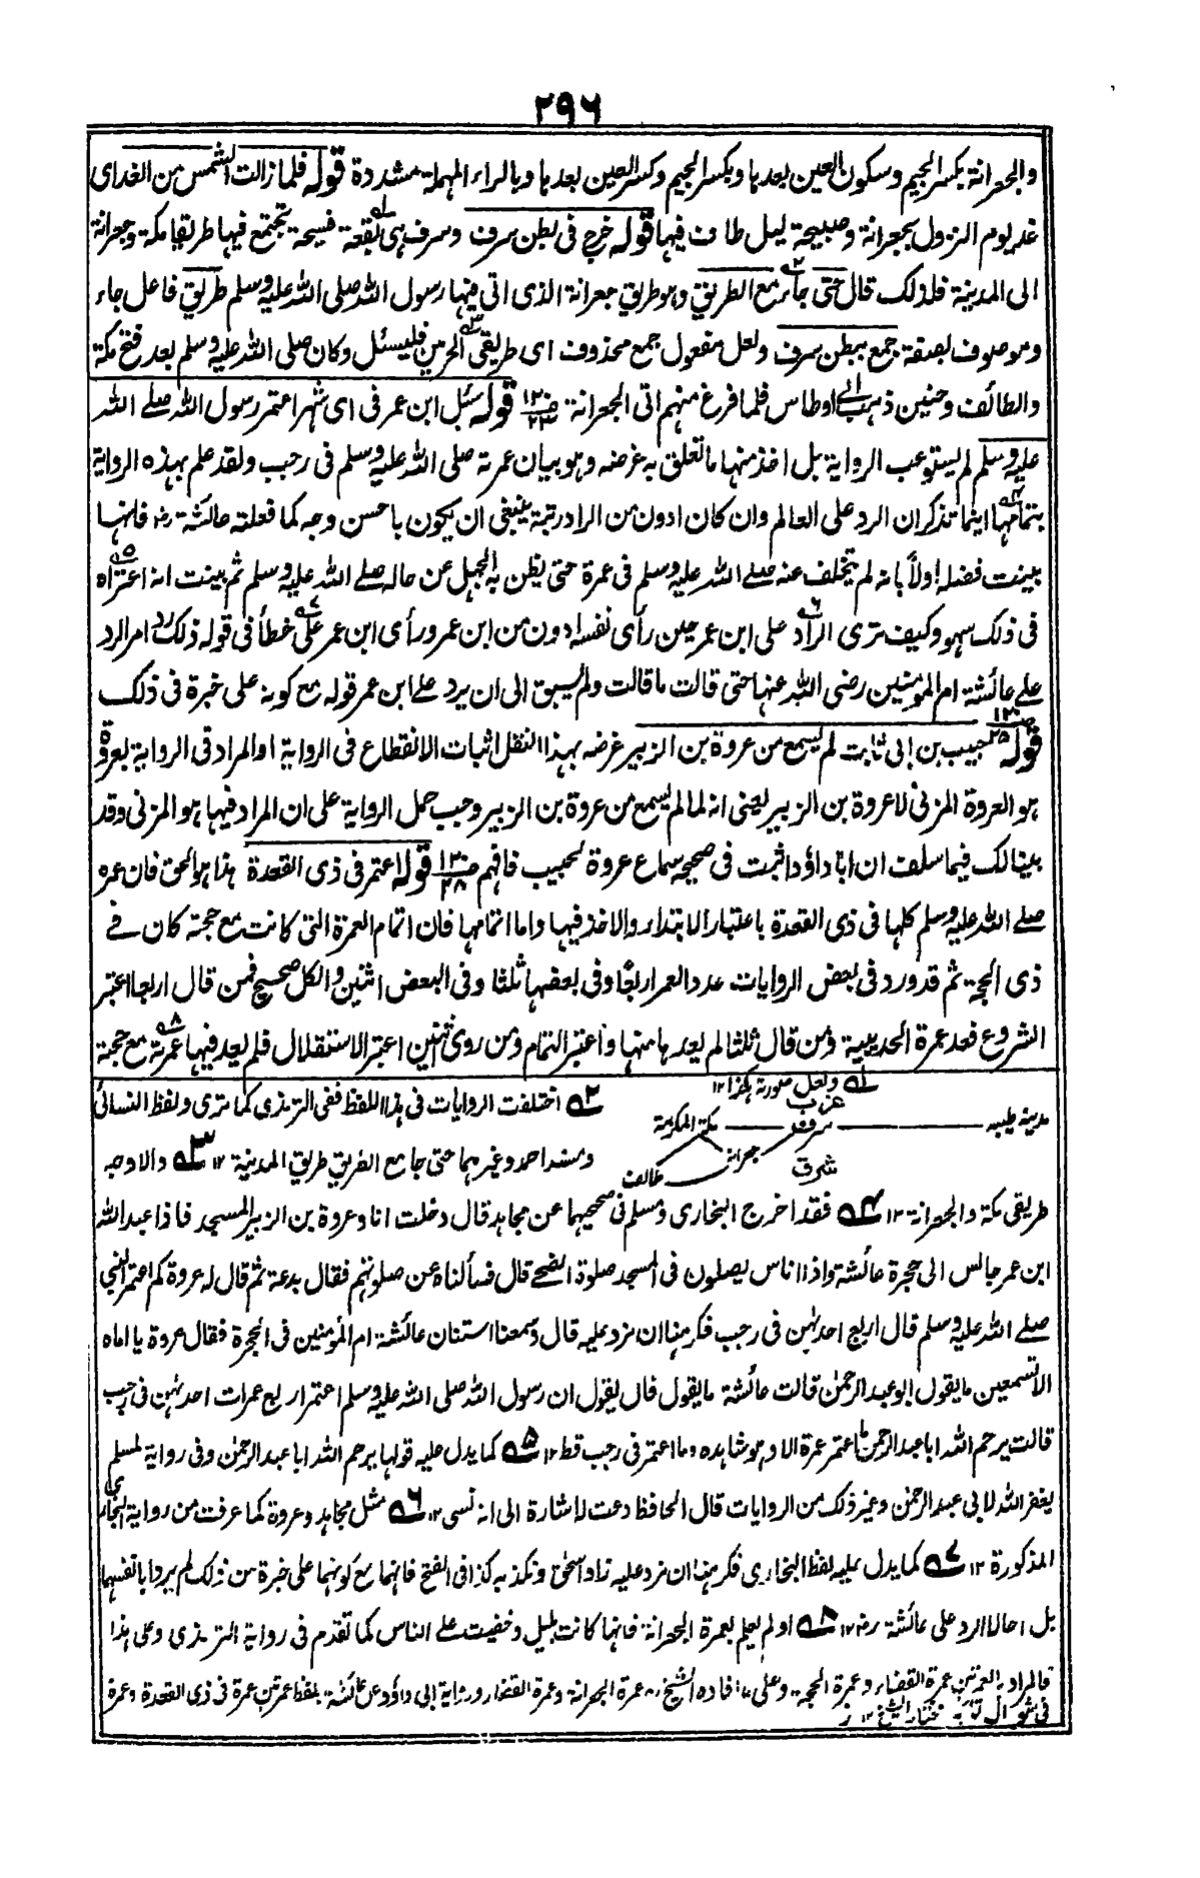 ٢٩٦
والجعرانة بكسر الجيم وسكون العين بعدها وبكسر الجيم وكسر العين بعدها وبالراء المهملة مشددة قوله فلما زالت الشمس من الغد اى
غد يوم النزول بجعرانة وصبيحة ليل طاف فيها قوله خرج فى بطن سرف وسرف هى بقعة فسيحة تجتمع فيها طريقا مكة وجعرانة
الى المدينة فلذلك قال حتى جاء مع الطريق وهو طريق جعرانة الذى اتى فيها رسول الله صلى الله عليه وسلم طريق فاعل جاء
وموصوف بصفة جمع ببطن سرف ولعل مفعول جمع محذوف اى طريقى الحرمين فليسئل وكان صلى الله عليه وسلم بعد فتح مكة
والطائف وحنين ذهب الى اوطاس فلما فرغ منهم اتى الجعرانة قوله سئل ابن عمر فى اى شهر اعتمر رسول الله صلے الله
عليه وسلم لم يستوعب الرواية بل اخذ منها ما تعلق به غرضه وهو بيان عمرته صلى الله عليه وسلم فى رجب ولقد علم بهذه الرواية
بتمامها اينما تذكر ان الرد على العالم وان كان ادون من الراد رتبة ينبغى ان يكون باحسن وجه كما فعلته عائشة رض فانها
بينت فضله اولاً بانه لم يتخلف عنه صلے الله عليه وسلم فى عمرة حتى يظن به الجهل عن حاله صلے الله عليه وسلم ثم بينت انه اعتراه
فى ذلك سهو وكيف ترى الراد على ابن عمر حين رأى نفسه ادون من ابن عمر ورأى ابن عمر على خطأ فى قوله ذلك رد امر الرد
علے عائشة ام المؤمنين رضى الله عنها حتى قالت ما قالت ولم يسبق الى ان يرد علے ابن عمر قوله مع كونه على خبرة فى ذلك
قوله حبيب بن ابى ثابت لم يسمع من عروة بن الزبير غرضه بهذا النقل اثبات الانقطاع فى الرواية او المراد فى الرواية بعروة
هو العروة المزنى لا عروة بن الزبير يعنى انه لما لم يسمع من عروة بن الزبير وجب حمل الرواية على ان المراد فيها هو المزنى وقد
بينا لك فيما سلف ان ابا داؤد اثبت فى صحيحه سماع عروة لحبيب فافهم قوله اعتمر فى ذى القعدة هذا هو الحق فان عمره
صلے الله عليه وسلم كلها فى ذى القعدة باعتبار الابتداء والاخذ فيها واما اتمامها فان اتمام العمرة التى كانت مع حجته كان فے
ذى الحجة ثم قد ورد فى بعض الروايات عدد العمر اربعًا وفى بعضها ثلثا وفى البعض اثنين والكل صحيح فمن قال اربعا اعتبر
الشروع فعد عمرة الحديبية ومن قال ثلثا لم يعدها منها واعتبر التمام ومن روى ثنتين اعتبر الاستقلال فلم يعد فيها عمرته مع حجته
١ ولعل صورته هكذا ١٢
غرب
مدينه طيبه سرف مكة المكرمة
جعرانه
شرق طائف
٢ اختلفت الروايات فى هذا اللفظ ففى الترمذى كما ترى ولفظ النسائى
ومسند احمد وغيرهما حتى جامع الطريق طريق المدينة ١٢ ٣ والاوجه
طريقى مكة والجعرانة ١٢ ٤ فقد اخرج البخارى ومسلم فى صحيحيهما عن مجاهد قال دخلت انا وعروة بن الزبير المسجد فاذا عبد الله
ابن عمر جالس الى حجرة عائشة واذا اناس يصلون فى المسجد صلوة الضحے قال فسألناه عن صلوتهم فقال بدعة ثم قال له عروة كم اعتمر النبى
صلے الله عليه وسلم قال اربع احدٰهن فى رجب فكرهنا ان نرد عليه قال وسمعنا استنان عائشة ام المؤمنين فى الحجرة فقال عروة يا اماه
الا تسمعين ما يقول ابو عبد الرحمٰن قالت عائشة ما يقول قال يقول ان رسول الله صلى الله عليه وسلم اعتمر اربع عمرات احدٰهن فى رجب
قالت يرحم الله ابا عبد الرحمٰن ما اعتمر عمرة الا وهو شاهده وما اعتمر فى رجب قط ١٢ ٥ كما يدل عليه قولها يرحم الله ابا عبد الرحمٰن وفى رواية لمسلم
يغفر الله لابى عبد الرحمٰن وغير ذلك من الروايات قال الحافظ دعت له اشارة الى انه نسى ١٢ ٦ مثل مجاهد وعروة كما عرفت من رواية البخارى
المذكورة ١٢ ٧ كما يدل عليه لفظ البخارى فكرهنا ان نرد عليه زاد اسحٰق ونكذبه كذا فى الفتح فانهما مع كونهما على خبرة من ذلك لم يردا بانفسهما
بل احالا الرد على عائشة رض ١٢ ٨ او لم يعلم بعمرة الجعرانة فانها كانت بليل وخفيت علے الناس كما تقدم فى رواية الترمذى وعلى هذا
فالمراد بالعمرتين عمرة القضاء وعمرة الحجة وعلى ما افاده الشيخ عمرة الجعرانة وعمرة القضاء ورواية ابى داؤد عن عائشة بلفظ عمرتين عمرة فى ذى القعدة وعمرة
فى شوال